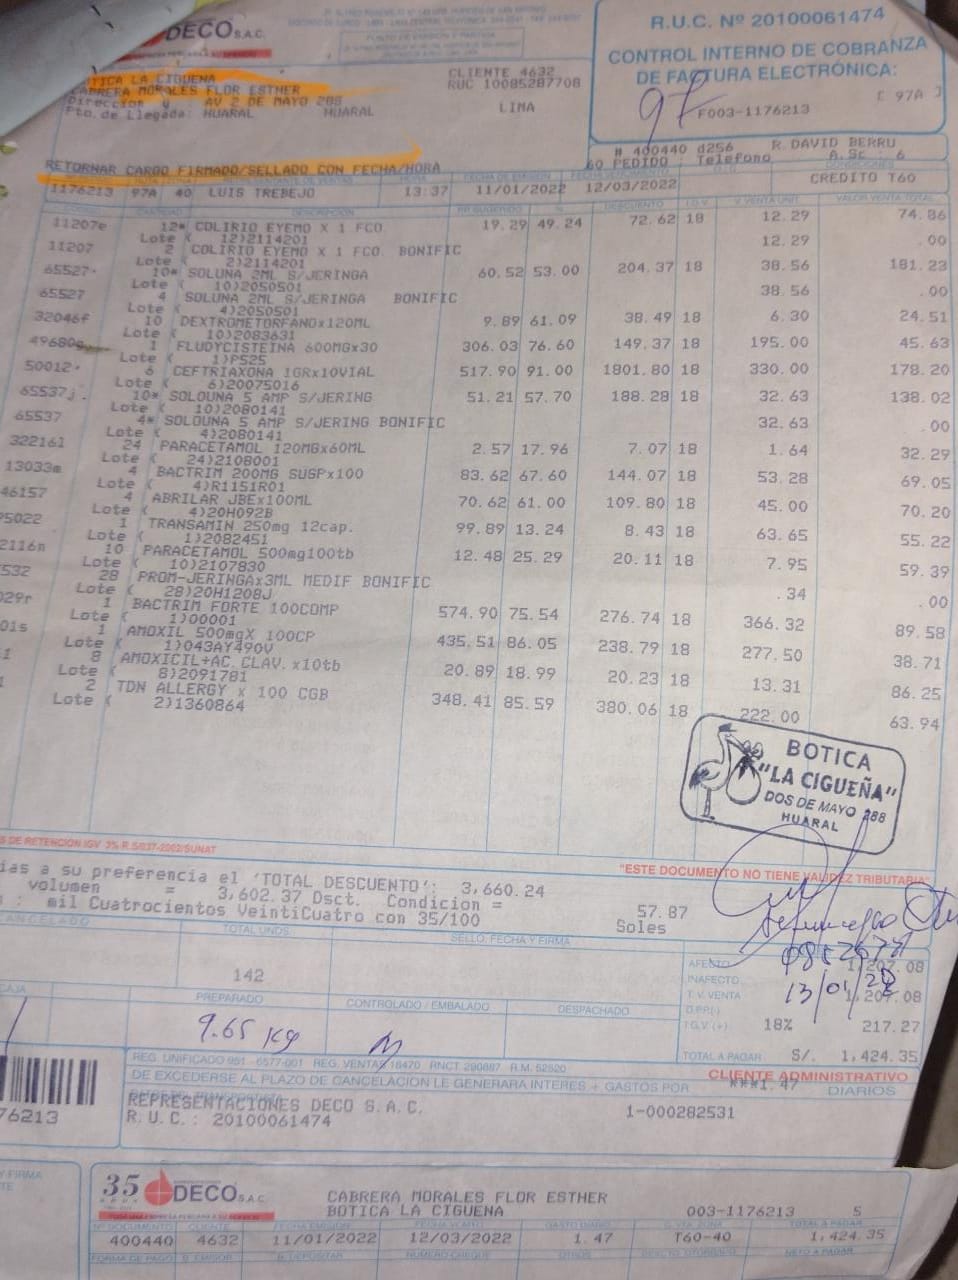 DECO S.A.C.
R.U.C. Nº 20100061474
CONTROL INTERNO DE COBRANZA
DE FACTURA ELECTRÓNICA:
[ 97A ]
97
F003-1176213
BOTICA LA CIGUENA
CABRERA MORALES FLOR ESTHER
Direccion y AV 2 DE MAYO 288
Pto. de Llegada: HUARAL HUARAL LIMA
CLIENTE 4632
RUC 10085287708
# 400440 d256 R. DAVID BERRU
60 PEDIDO : Telefono A. Sc. 6
RETORNAR CARGO FIRMADO/SELLADO CON FECHA/HORA
HORA FECHA DE EMISIÓN FECHA VENCIMIENTO CONDICIONES
1176213 97A 40 LUIS TREBEJO 13:37 11/01/2022 12/03/2022 CREDITO T60
CANTIDAD DESCRIPCIÓN PR.SUGERIDO % DESCUENTO I.G.V. V.VENTA UNIT. VALOR VENTA TOTAL
11207e 12* COLIRIO EYEMO X 1 FCO 19.29 49.24 72.62 18 12.29 74.86
Lote ( 12)2114201
11207 2 COLIRIO EYEMO X 1 FCO. BONIFIC 12.29 .00
Lote ( 2)2114201
65527 10* SOLUNA 2ML S/JERINGA 60.52 53.00 204.37 18 38.56 181.23
Lote ( 10)2050501
65527 4 SOLUNA 2ML S/JERINGA BONIFIC 38.56 .00
Lote ( 4)2050501
32046f 10 DEXTROMETORFANOx120ML 9.89 61.09 38.49 18 6.30 24.51
Lote ( 10)2083631
49680g 1 FLUDYCISTEINA 600MGx30 306.03 76.60 149.37 18 195.00 45.63
Lote ( 1)P525
50012 6 CEFTRIAXONA 1GRx10VIAL 517.90 91.00 1801.80 18 330.00 178.20
Lote ( 6)20075016
65537j 10* SOLOUNA 5 AMP S/JERING 51.21 57.70 188.28 18 32.63 138.02
Lote ( 10)2080141
65537 4* SOLOUNA 5 AMP S/JERING BONIFIC 32.63 .00
Lote ( 4)2080141
322161 24 PARACETAMOL 120MGx60ML 2.57 17.96 7.07 18 1.64 32.29
Lote ( 24)2108001
13033m 4 BACTRIM 200MG SUSPx100 83.62 67.60 144.07 18 53.28 69.05
Lote ( 4)R1151R01
46157 4 ABRILAR JBEx100ML 70.62 61.00 109.80 18 45.00 70.20
Lote ( 4)20H092B
95022 1 TRANSAMIN 250mg 12cap. 99.89 13.24 8.43 18 63.65 55.22
Lote ( 1)2082451
2116n 10 PARACETAMOL 500mg100tb 12.48 25.29 20.11 18 7.95 59.39
Lote ( 10)2107830
532 28 PROM-JERINGAx3ML MEDIF BONIFIC .34 .00
Lote ( 28)20H1208J
029r 1 BACTRIM FORTE 100COMP 574.90 75.54 276.74 18 366.32 89.58
Lote ( 1)00001
01s 1 AMOXIL 500mgX 100CP 435.51 86.05 238.79 18 277.50 38.71
Lote ( 1)043AY490V
1 8 AMOXICIL+AC.CLAV.x10tb 20.89 18.99 20.23 18 13.31 86.25
Lote ( 8)2091781
2 TDN ALLERGY x 100 CGB 348.41 85.59 380.06 18 222.00 63.94
Lote ( 2)1360864
BOTICA
"LA CIGUEÑA"
DOS DE MAYO 288
HUARAL
S DE RETENCION IGV 3% R.S/037-2002/SUNAT
"ESTE DOCUMENTO NO TIENE VALIDEZ TRIBUTARIA"
ias a su preferencia el 'TOTAL DESCUENTO': 3,660.24
volumen = 3,602.37 Dsct. Condicion = 57.87
: mil Cuatrocientos VeintiCuatro con 35/100 Soles
CANCELADO TOTAL UNDS. SELLO, FECHA Y FIRMA
142
AFECTO 1,207.08
INAFECTO
T.V. VENTA 1,207.08
13/01/22
I.G.V. (+) 18% 217.27
TOTAL A PAGAR S/. 1,424.35
CAJA PREPARADO CONTROLADO / EMBALADO DESPACHADO
9.65 Kg
REG. UNIFICADO 951 - 6577-001 REG. VENTAS 18470 RNCT 290887 R.M. 52520
CLIENTE ADMINISTRATIVO
DE EXCEDERSE AL PLAZO DE CANCELACION LE GENERARA INTERES + GASTOS POR ***1.47 DIARIOS
76213
REPRESENTACIONES DECO S.A.C.
R.U.C.: 20100061474
1-000282531
Y FIRMA
35 AÑOS DECO S.A.C.
CABRERA MORALES FLOR ESTHER
BOTICA LA CIGUENA 003-1176213 S
Nº DOCUMENTO CLIENTE FECHA EMISION FECHA VCMTO GASTO DIARIO C. VTA. ZONA TOTAL A PAGAR
400440 4632 11/01/2022 12/03/2022 1.47 T60-40 1,424.35
FORMA DE PAGO B. EMISOR B. DEPOSITAR NUMERO CHEQUE OTROS DSCTO. OTORGADO NETO A PAGAR